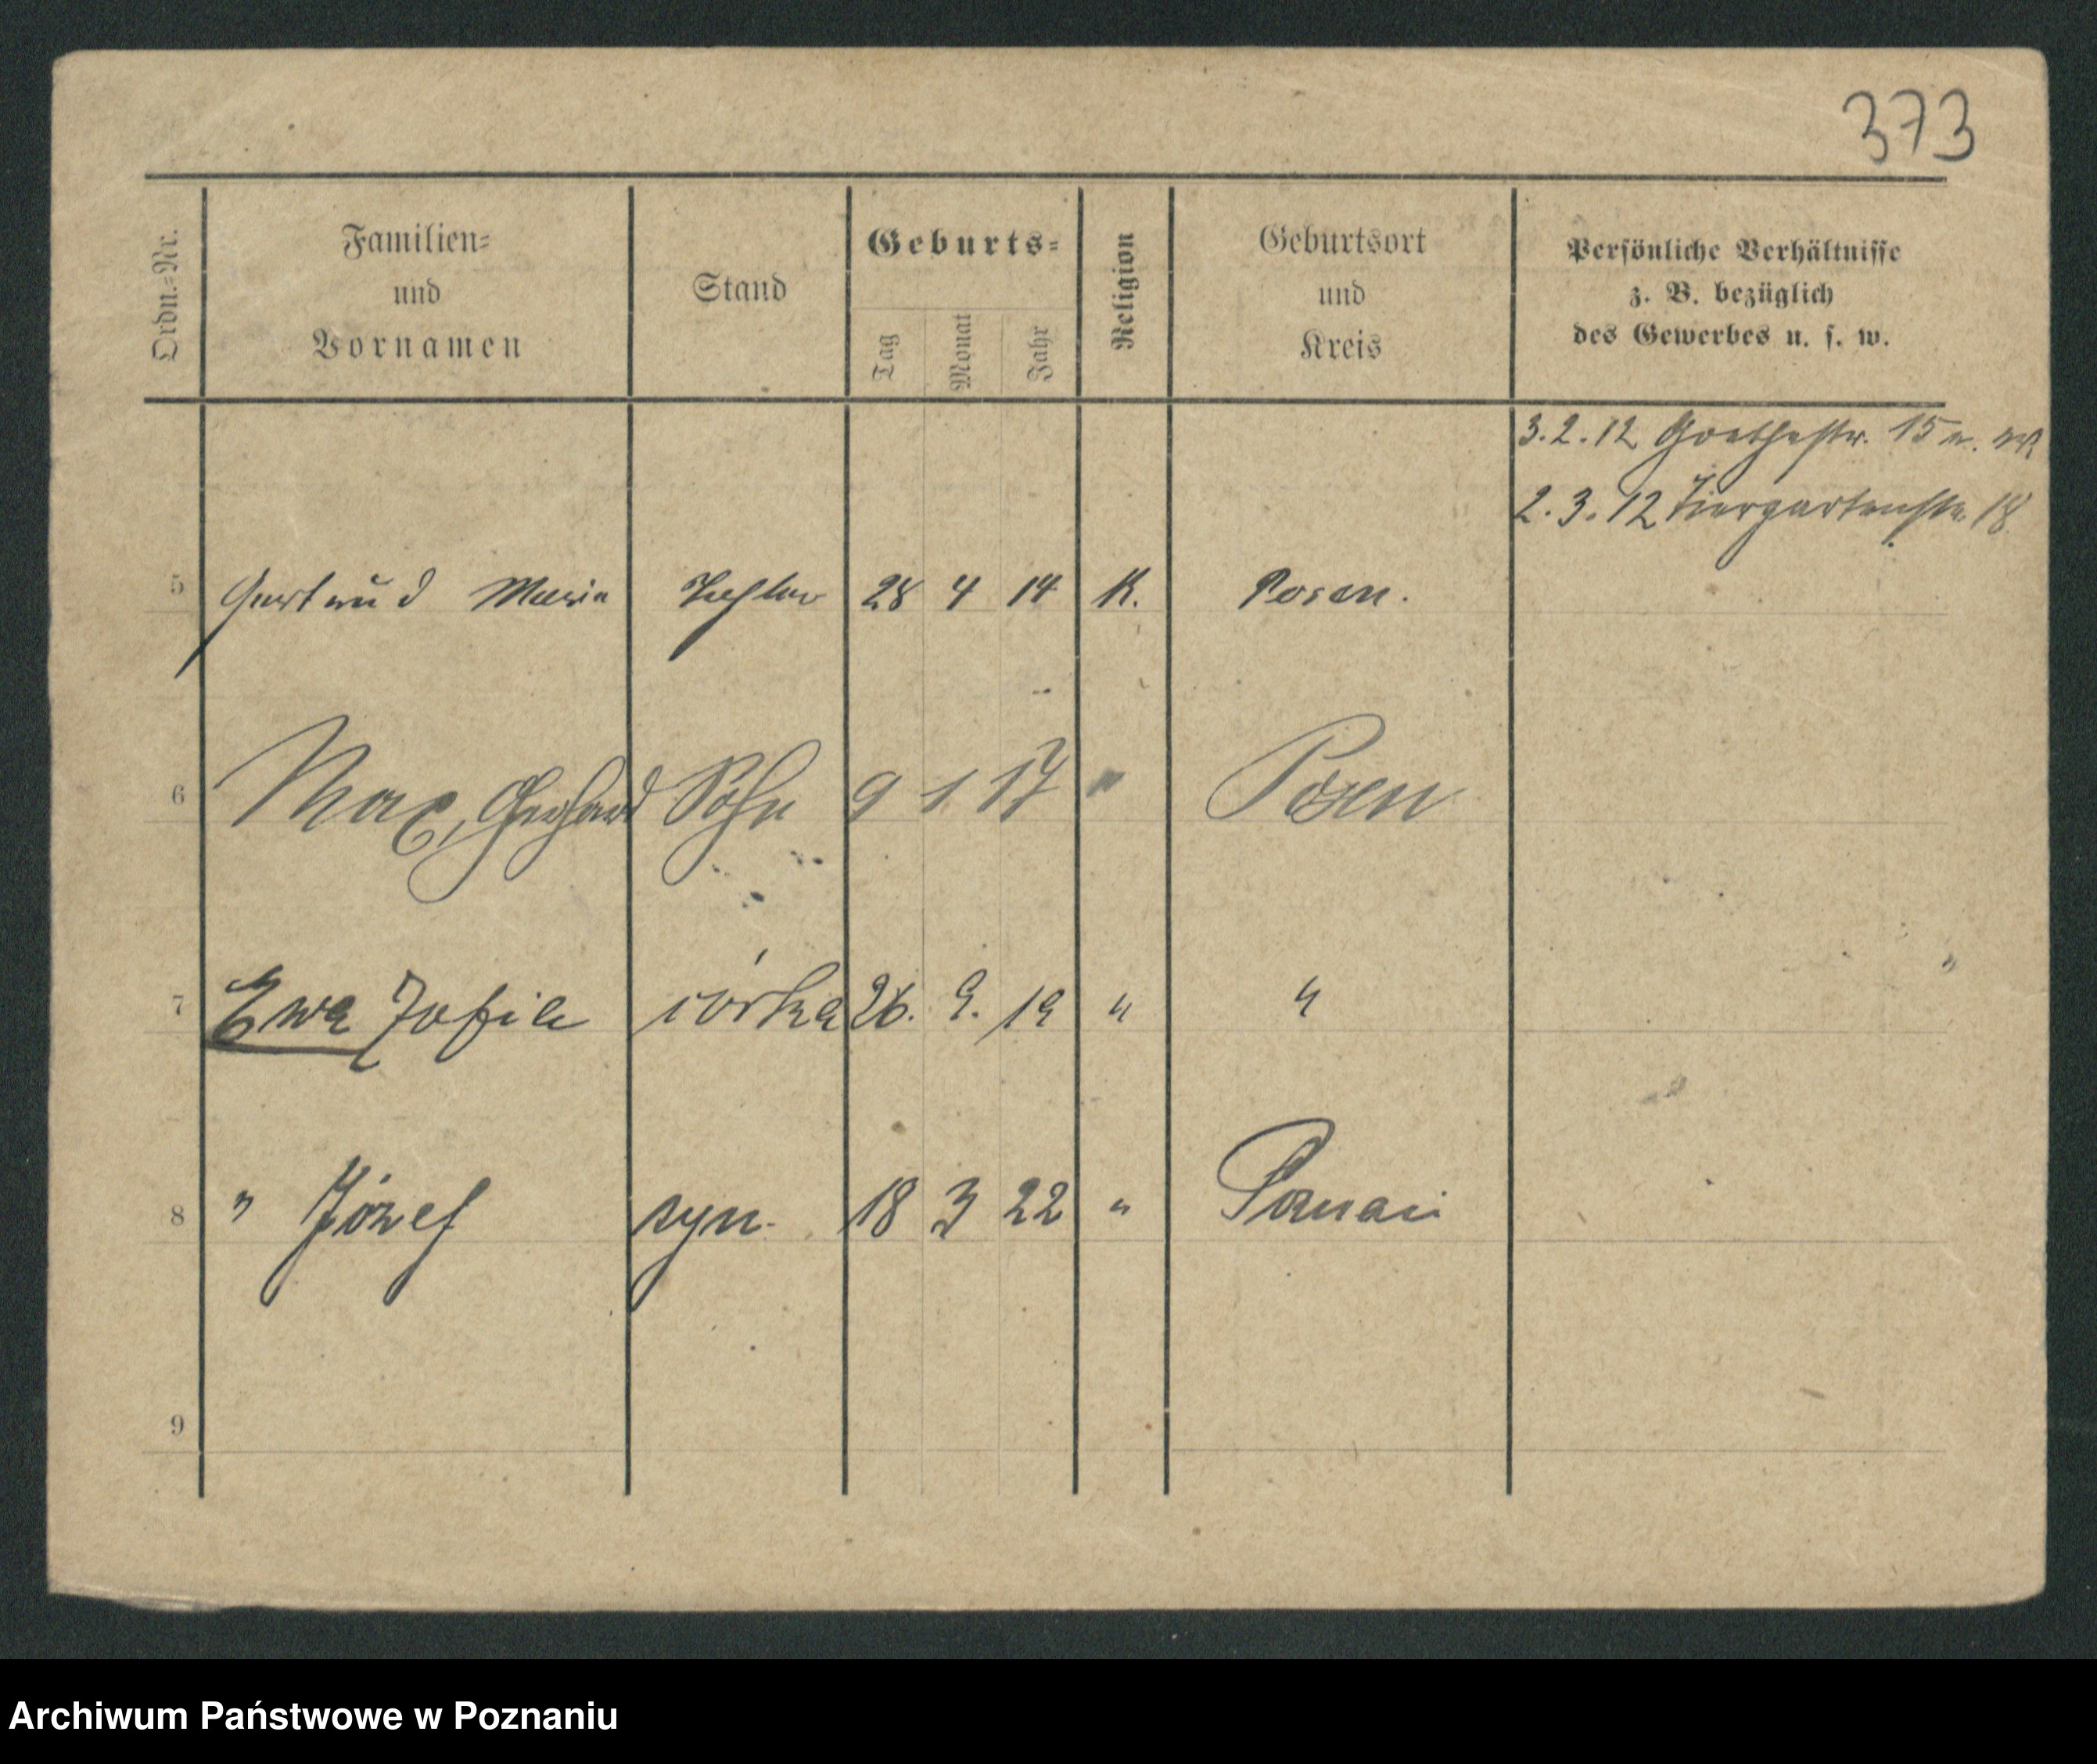 373
Ordn.=Nr.
Familien=
und
Vornamen
Stand
Geburts=
Tag
Monat
Jahr
Religion
Geburtsort
und
Kreis
Persönliche Verhältnisse
z. B. bezüglich
des Gewerbes u. s. w.
3.2.12 Goethestr. 15
2.3.12 Tiergartenstr. 18
5 Gertrud Maria Tochter 28 4 14 K. Posen.
6 Max, Gerhard Sohn 9 1 17 " Posen
7 Ewa Zofia córka 26. 9. 19 " "
8 " Józef syn. 18 3 22 " Poznań
9
Archiwum Państwowe w Poznaniu